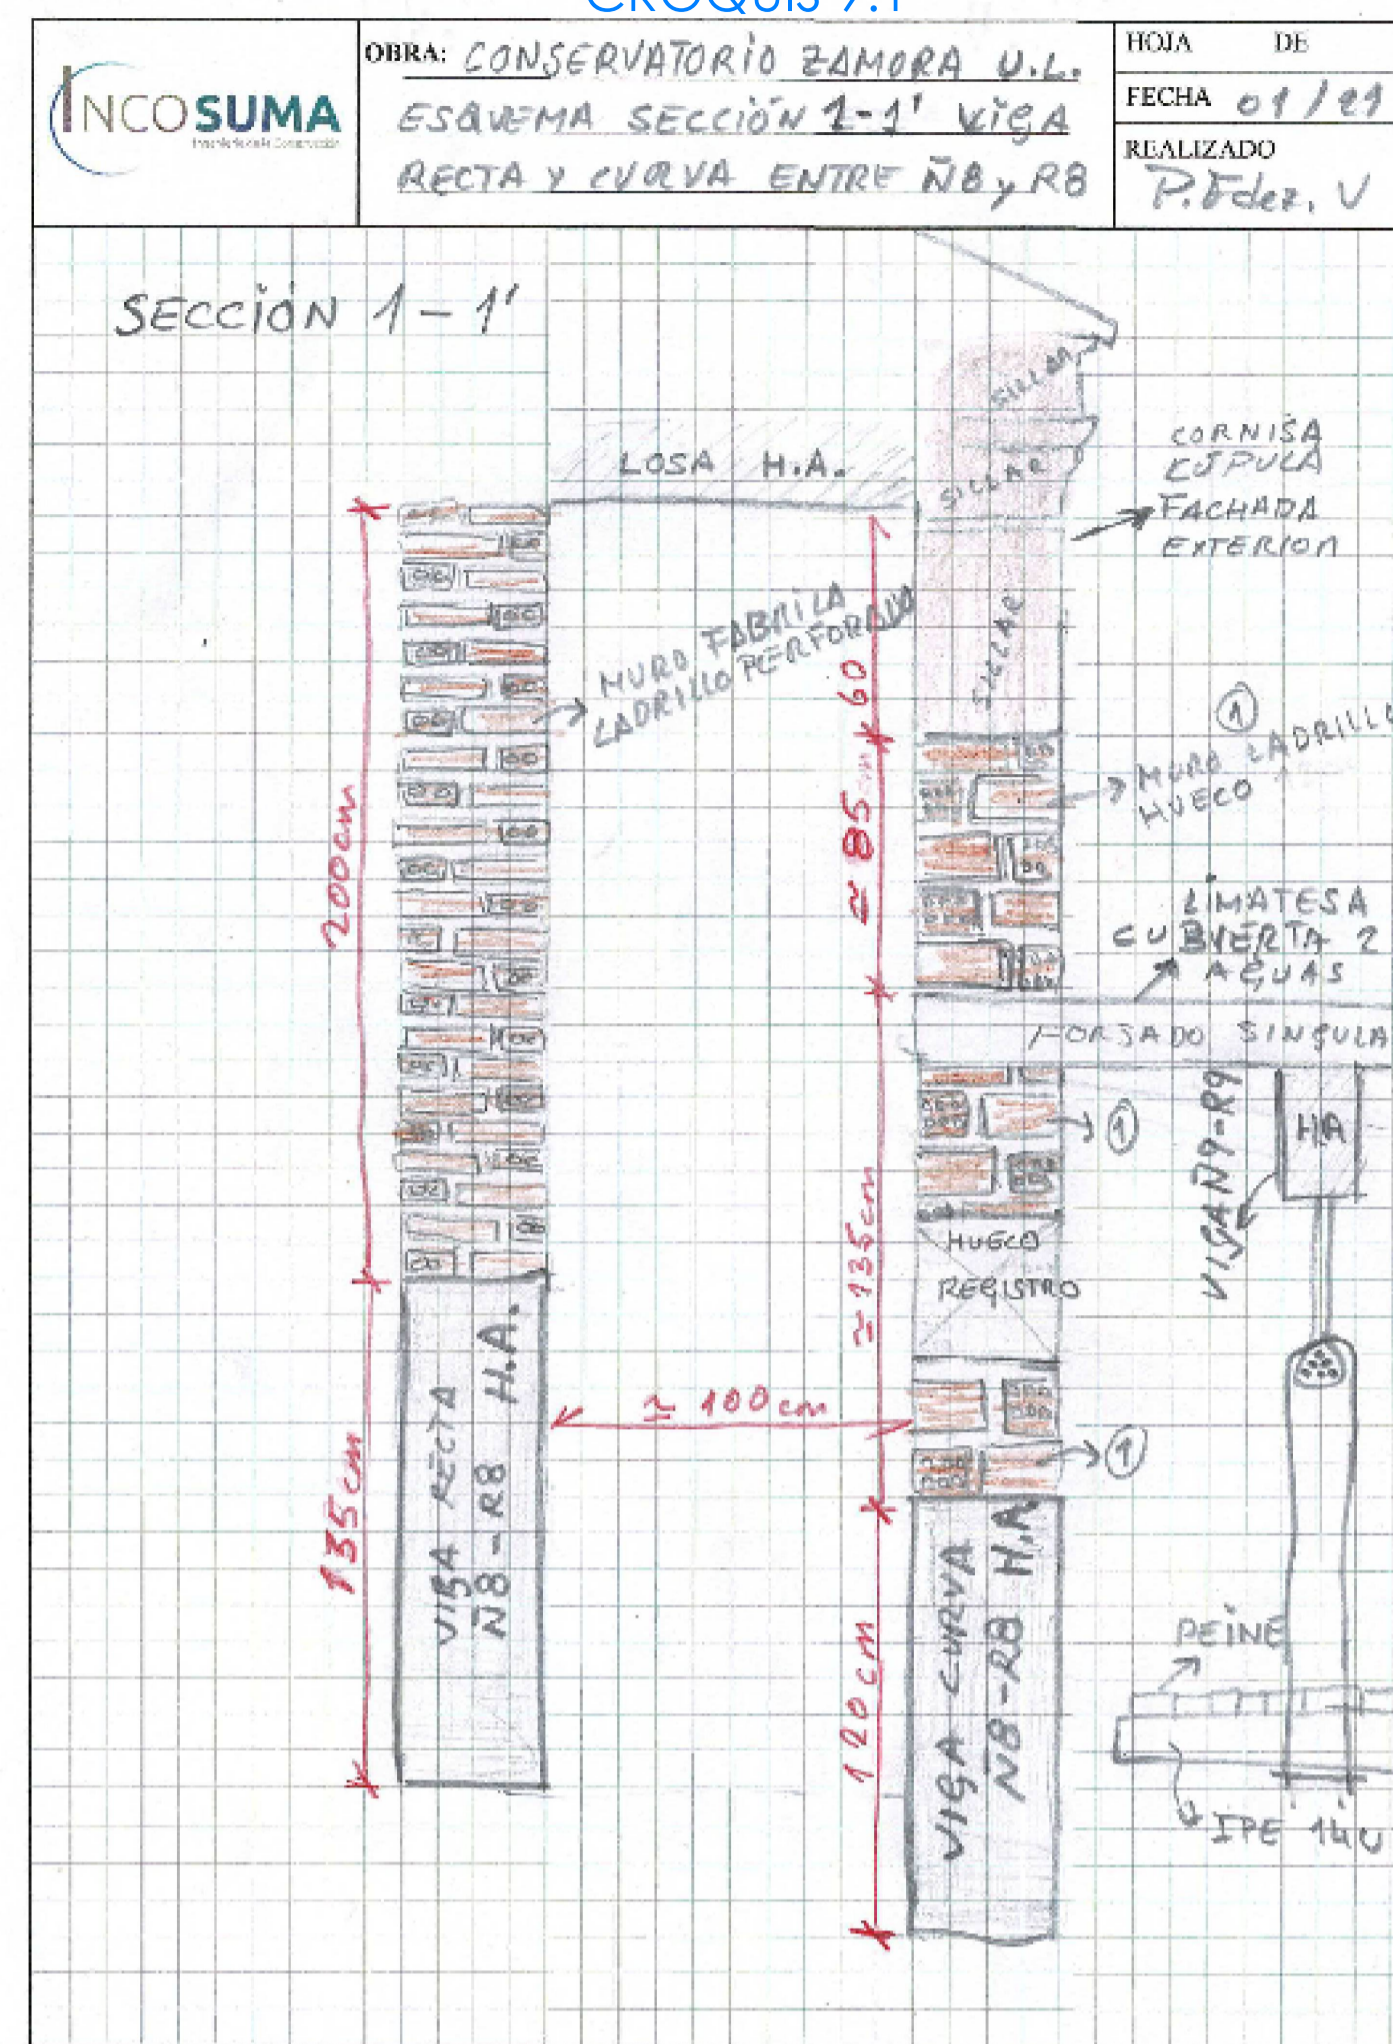 CROQUIS 9.1
INCOSUMA
OBRA: CONSERVATORIO ZAMORA U.L.
ESQUEMA SECCIÓN 1-1' VIGA
RECTA Y CURVA ENTRE Ñ8 y R8
HOJA DE
FECHA 01/21
REALIZADO
P.Fdez. V
SECCIÓN 1-1'
SILLAR
LOSA H.A.
SILLAR
CORNISA
CÚPULA
FACHADA
EXTERIOR
SILLAR
MURO FABRICA
LADRILLO PERFORADO
60
1
MURO LADRILLO
HUECO
200cm
≃ 85cm
LIMATESA
CUBIERTA 2
AGUAS
FORJADO SINGULA
1
VIGA Ñ9-R9
HA
≃ 135cm
HUECO
REGISTRO
≃ 100cm
1
135cm
VIGA RECTA
Ñ8-R8 H.A.
120cm
VIGA CURVA
Ñ8-R8 H.A
PEINE
IPE 140